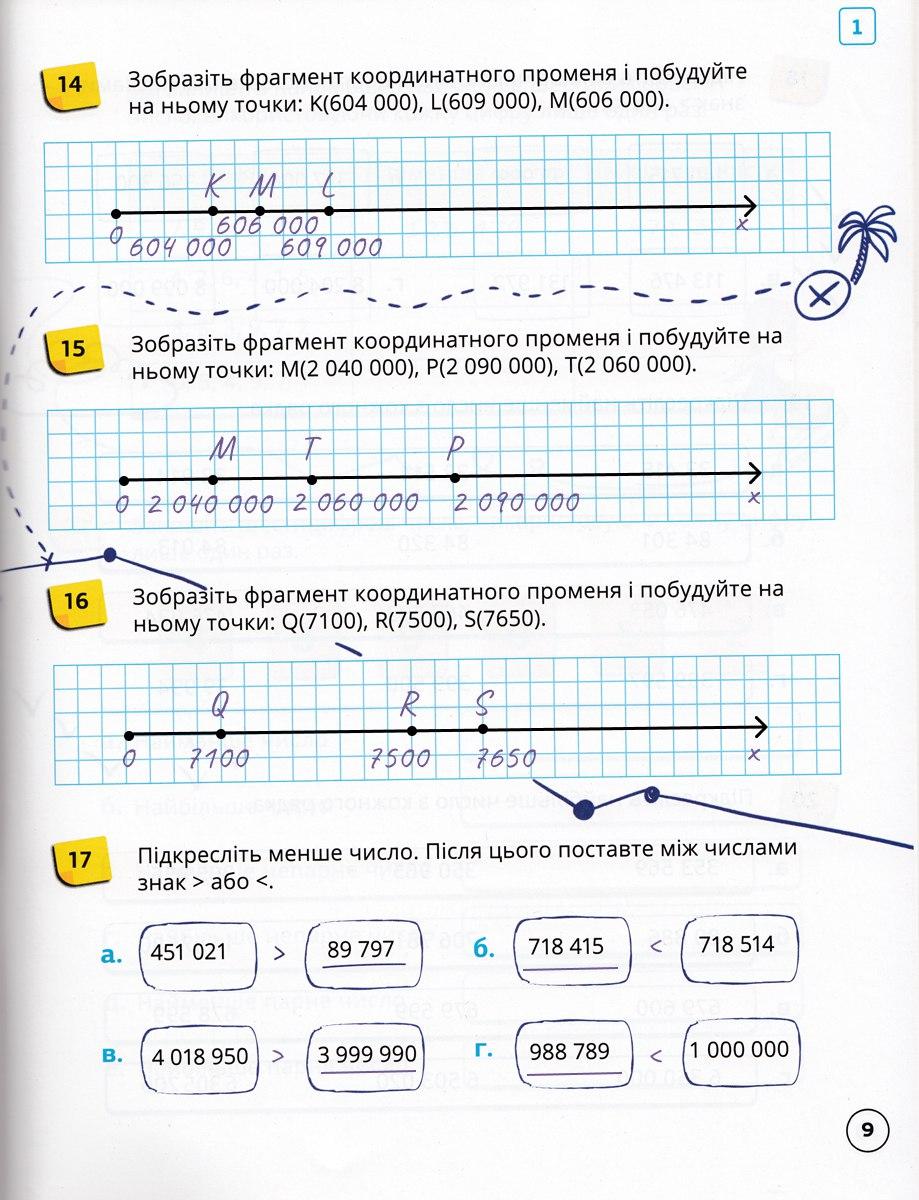 1
14
Зобразіть фрагмент координатного променя і побудуйте
на ньому точки: K(604 000), L(609 000), M(606 000).
K M L
0 606 000 x
604 000 609 000
15
Зобразіть фрагмент координатного променя і побудуйте на
ньому точки: M(2 040 000), P(2 090 000), T(2 060 000).
M T P
0 2 040 000 2 060 000 2 090 000 x
16
Зобразіть фрагмент координатного променя і побудуйте на
ньому точки: Q(7100), R(7500), S(7650).
Q R S
0 7100 7500 7650 x
17
Підкресліть менше число. Після цього поставте між числами
знак > або <.
а. 451 021 > 89 797 б. 718 415 < 718 514
в. 4 018 950 > 3 999 990 г. 988 789 < 1 000 000
9